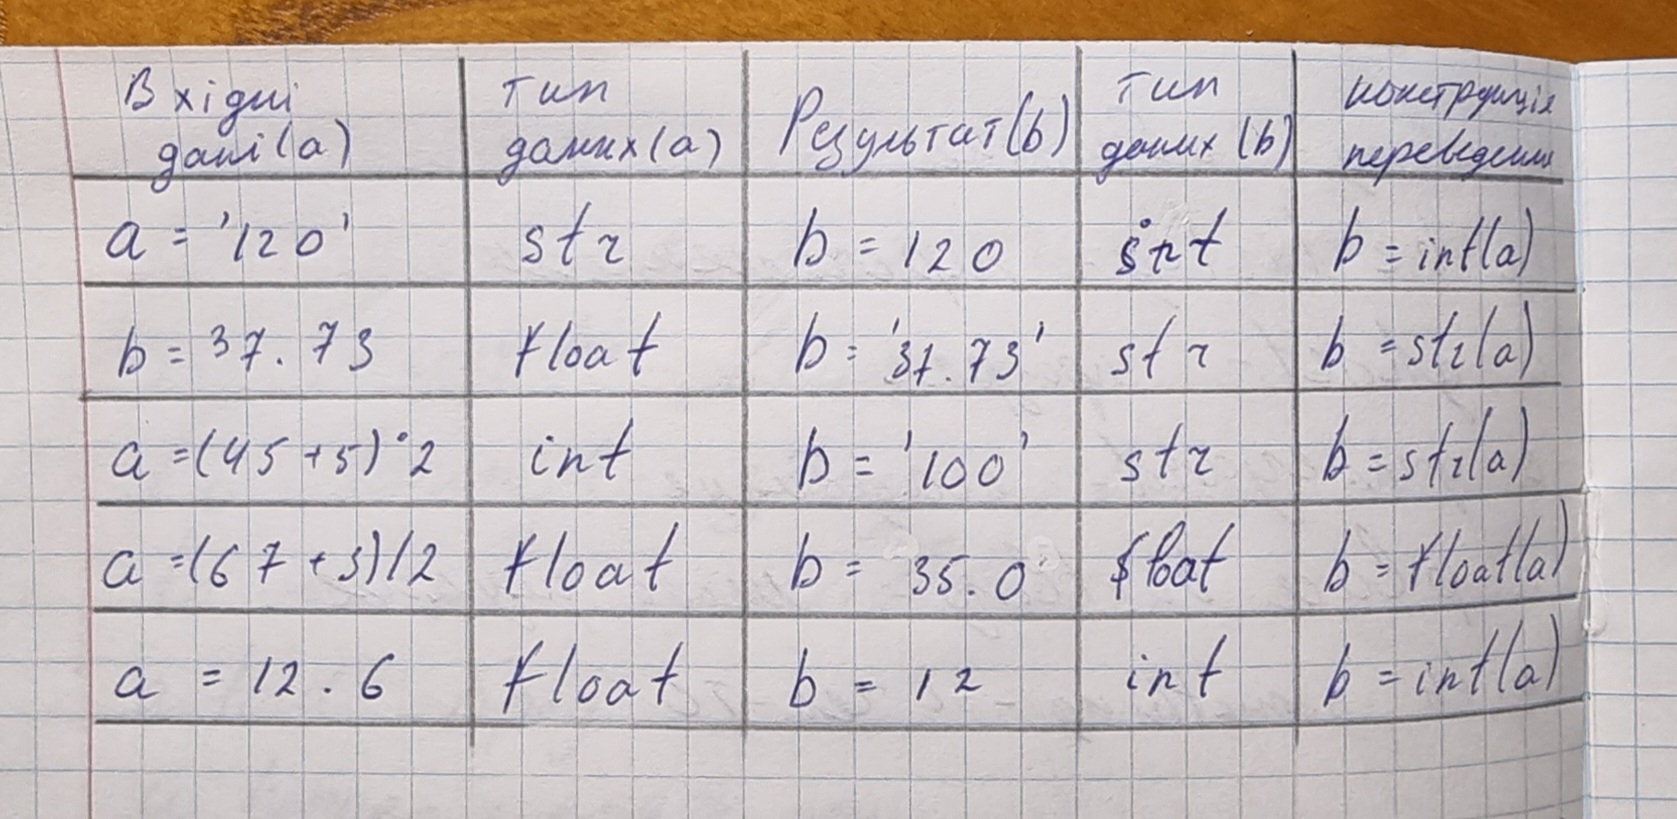 Вхідні дані(a) тип даних(a) Результат(b) тип даних (b) конструкція переведення
a = '120' str b = 120 int b = int(a)
b = 37.73 float b = '37.73' str b = str(a)
a =(45+5)*2 int b = '100' str b = str(a)
a =(67+3)/2 float b = 35.0 float b = float(a)
a = 12.6 float b = 12 int b = int(a)